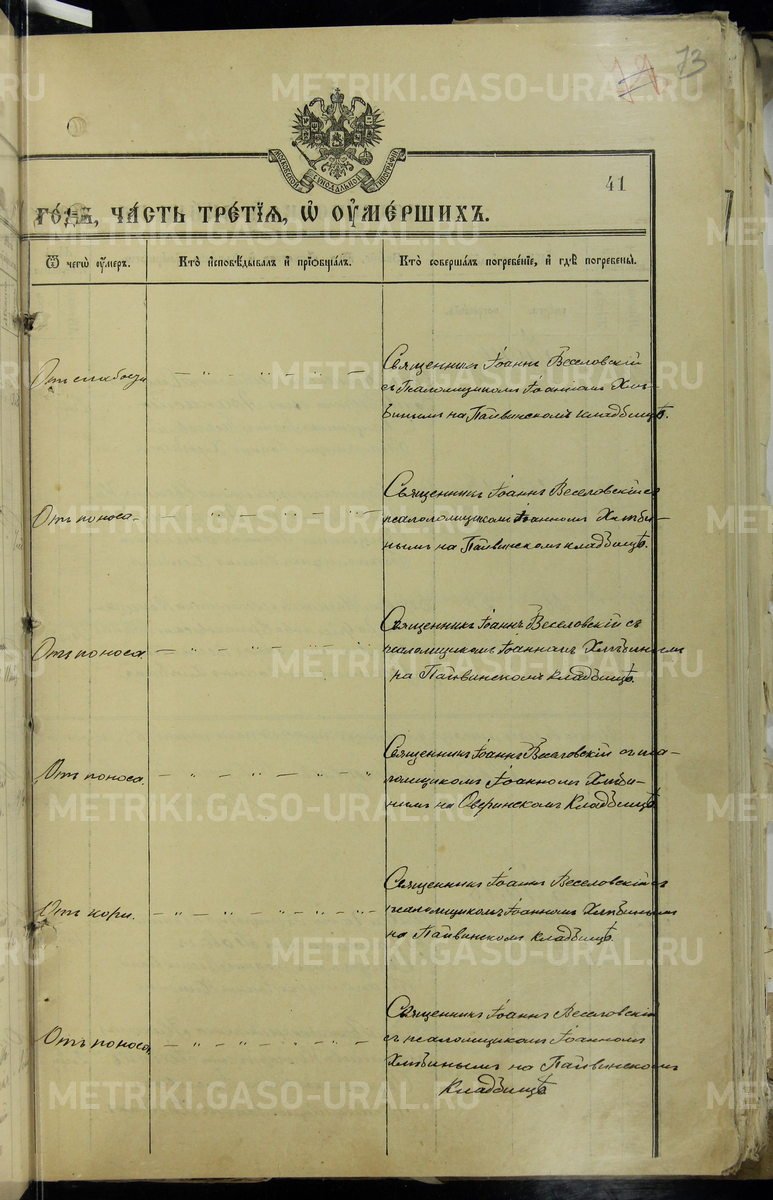 73
МОСКОВСКОЙ СѴНОДАЛЬНОЙ ТИПОГРАФІИ
41
го́да, ча́сть тре́тїѧ, ѡ҆ ᲂу҆ме́ршихъ.
Ѿ чегѡ̀ ᲂу҆́меръ. Кто̀ и҆сповѣ́дывалъ и҆ прїѡбща́лъ. Кто̀ соверша́лъ погребе́нїе, и҆ гдѣ̀ погребены̀.
Отъ слабости — „ — „ — „ — Священникъ Іоаннъ Веселовскій
съ Псаломщикомъ Іоанномъ Хлѣ-
бинымъ на Павинскомъ кладбищѣ.
Отъ поноса — „ — „ — „ — Священникъ Іоаннъ Веселовскій съ
псаломщикомъ Іоанномъ Хлѣби-
нымъ на Павинскомъ кладбищѣ.
Отъ поноса — „ — „ — „ — Священникъ Іоаннъ Веселовскій съ
псаломщикомъ Іоанномъ Хлѣбинымъ
на Павинскомъ кладбищѣ.
Отъ поноса. — „ — „ — „ — Священникъ Іоаннъ Веселовскій съ пса-
ломщикомъ Іоанномъ Хлѣби-
нымъ на Оверинскомъ Кладбищѣ
Отъ кори. — „ — „ — „ — Священникъ Іоаннъ Веселовскій съ
псаломщикомъ Іоанномъ Хлѣбинымъ
на Павинскомъ кладбищѣ.
Отъ поноса — „ — „ — „ — Священникъ Іоаннъ Веселовскій
съ псаломщикомъ Іоанномъ
Хлѣбинымъ на Павинскомъ
Кладбищѣ
METRIKI.GASO-URAL.RU